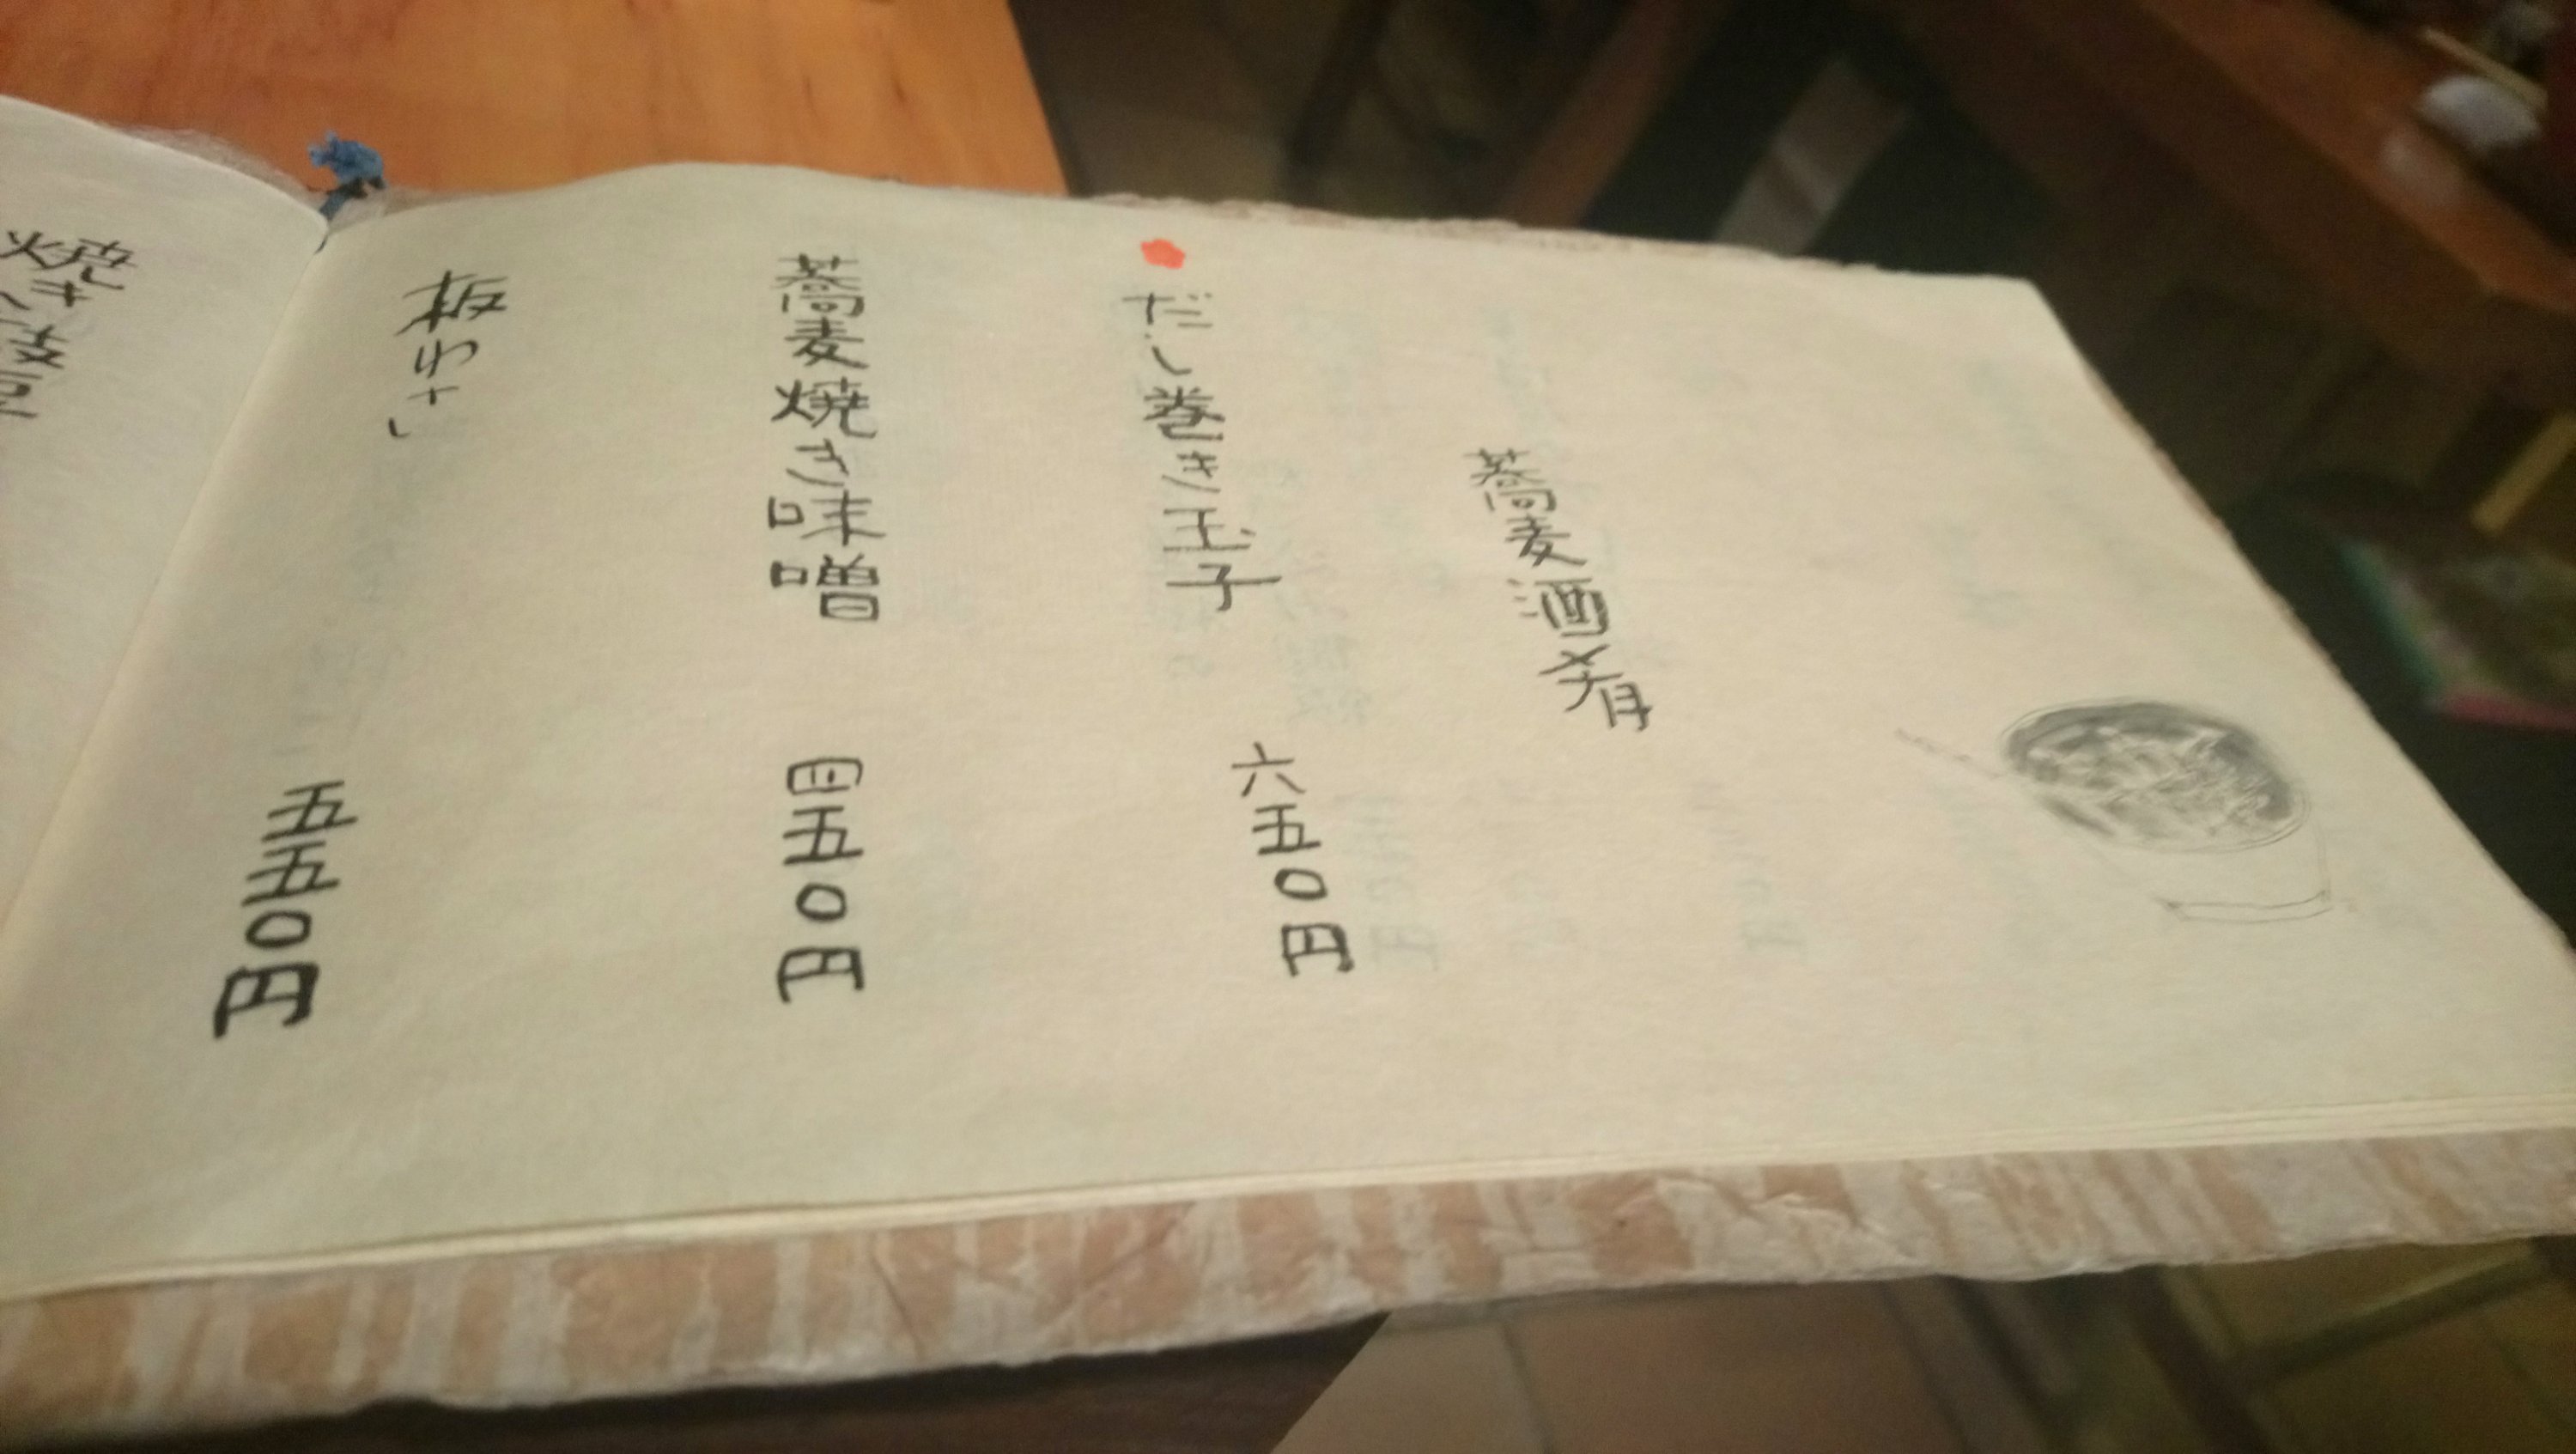 蕎麦酒肴
だし巻き玉子 六五〇円
蕎麦焼き味噌 四五〇円
板わさ 五五〇円
焼き